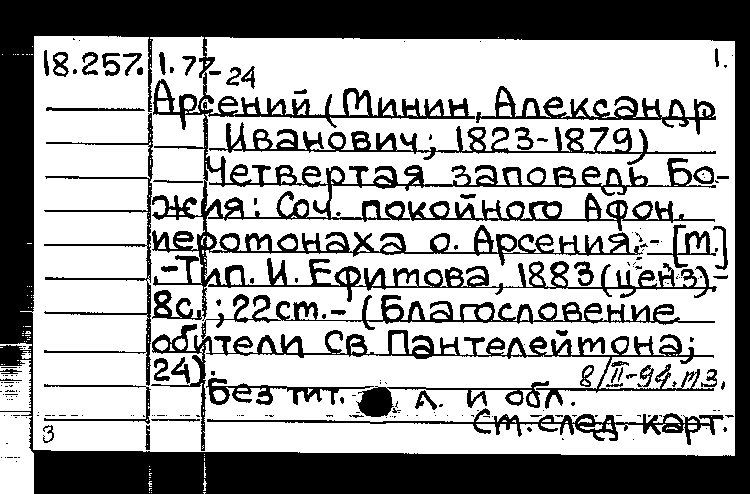 18.257. 1.77-24 1.
Арсений (Минин, Александр
Иванович; 1823-1879)
Четвертая заповедь Бо-
жия: Соч. покойного Афон.
иеромонаха о. Арсения. - [М.]
.-Тип. И. Ефимова, 1883 (ценз).-
8с.; 22см.- (Благословение
обители Св. Пантелеймона;
24).
8/II-94. мз.
Без тит. л. и обл.
См. след. карт.
3